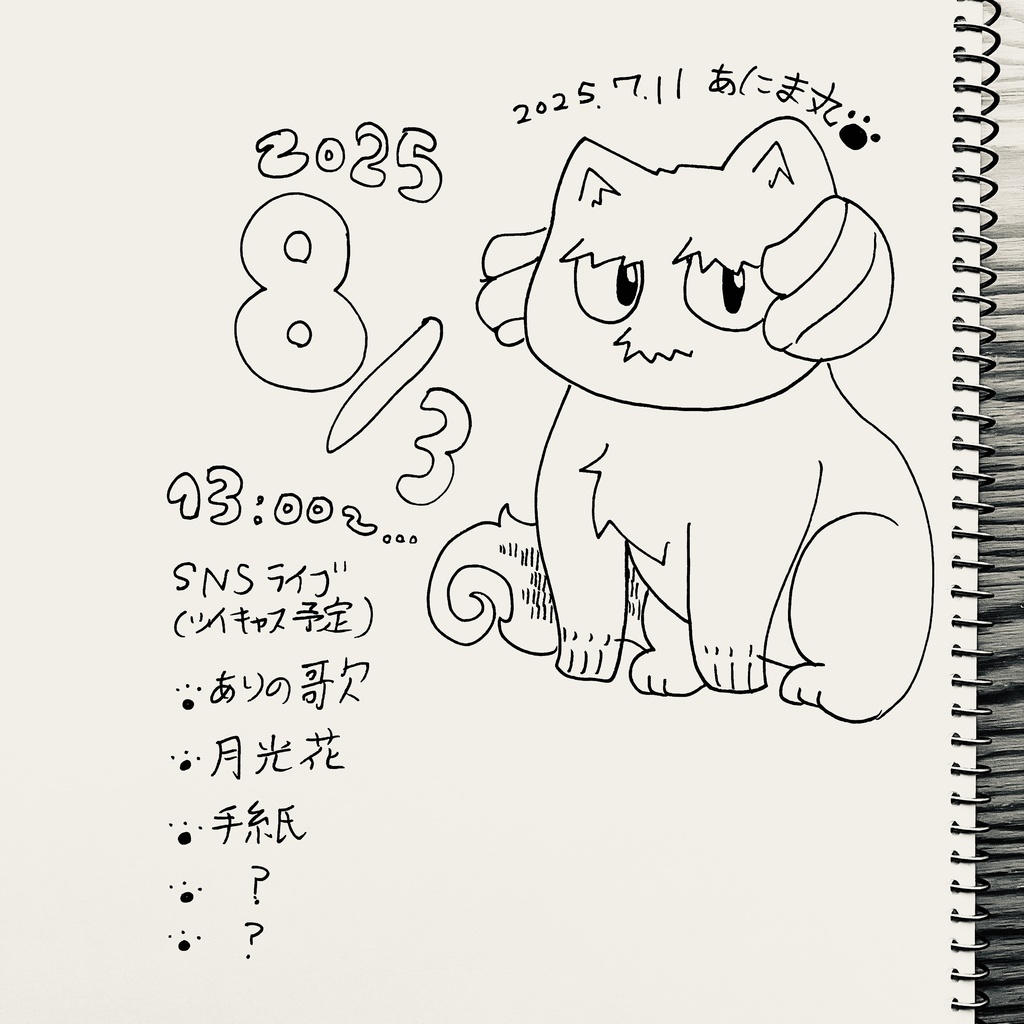 2025.7.11 あにま丸
2025
8/3
13:00～...
SNSライブ
(ツイキャス予定)
ありの歌
月光花
手紙
?
?